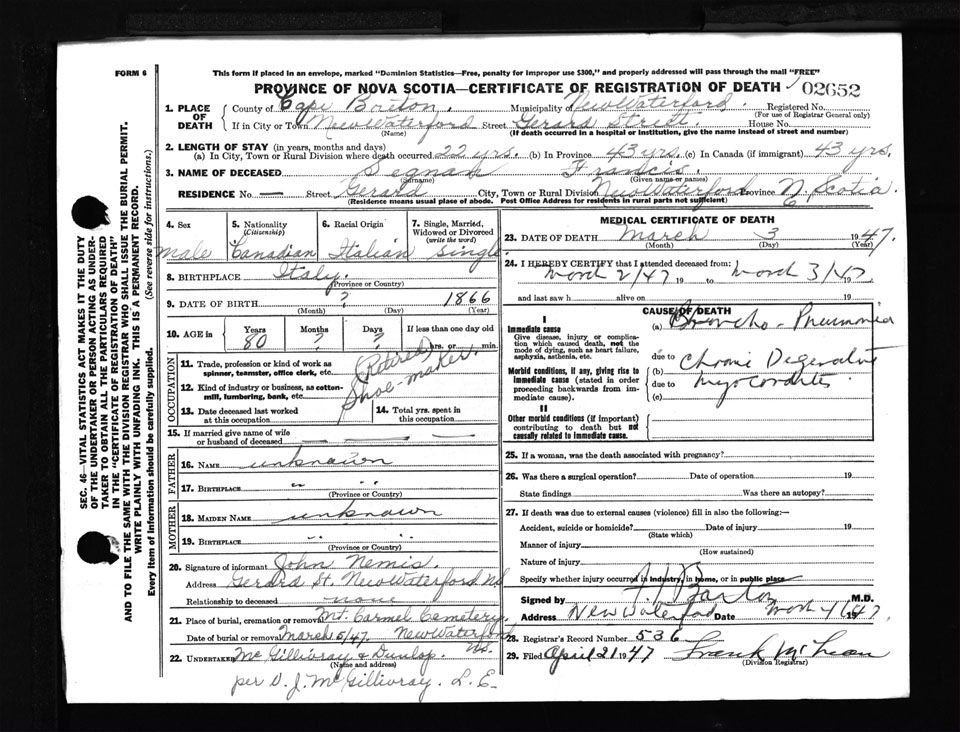 FORM 6
This form if placed in an envelope, marked "Dominion Statistics—Free, penalty for improper use $300," and properly addressed will pass through the mail "FREE"
PROVINCE OF NOVA SCOTIA—CERTIFICATE OF REGISTRATION OF DEATH 02652
1. PLACE OF DEATH
County of Cape Breton. Municipality of New Waterford. Registered No.
(For use of Registrar General only)
If in City or Town New Waterford Street Gerard Street. House No.
(Name) (If death occurred in a hospital or institution, give the name instead of street and number)
2. LENGTH OF STAY (in years, months and days)
(a) In City, Town or Rural Division where death occurred 22 yrs. (b) In Province 43 yrs. (c) In Canada (if immigrant) 43 yrs.
3. NAME OF DECEASED Francis.
(Surname) (Given name or names)
RESIDENCE No. — Street Gerard City, Town or Rural Division New Waterford Province N. Scotia.
(Residence means usual place of abode. Post Office Address for residents in rural parts not sufficient)
4. Sex male
5. Nationality (Citizenship) Canadian
6. Racial Origin Italian
7. Single, Married, Widowed or Divorced (write the word) Single
8. BIRTHPLACE Italy.
(Province or Country)
9. DATE OF BIRTH ? 1866
(Month) (Day) (Year)
10. AGE in Years 80 Months ? Days ? If less than one day old hrs. or min.
OCCUPATION
11. Trade, profession or kind of work as spinner, teamster, office clerk, etc. (Retired)
12. Kind of industry or business, as cotton-mill, lumbering, bank, etc. Shoe-maker.
13. Date deceased last worked at this occupation
14. Total yrs. spent in this occupation
15. If married give name of wife or husband of deceased — — —
FATHER
16. NAME unknown
17. BIRTHPLACE " "
(Province or Country)
MOTHER
18. MAIDEN NAME unknown
19. BIRTHPLACE " "
(Province or Country)
20. Signature of informant John Nemis.
Address Gerard St. New Waterford NS
Relationship to deceased none
21. Place of burial, cremation or removal Mt. Carmel Cemetery,
Date of burial or removal March 5/47. New Waterford NS.
22. UNDERTAKER McGillivray & Dunlop.
(Name and address)
per D. J. McGillivray. L. E.
MEDICAL CERTIFICATE OF DEATH
23. DATE OF DEATH March 3 1947.
(Month) (Day) (Year)
24. I HEREBY CERTIFY that I attended deceased from:
March 2/47 19 to March 3/47 19
and last saw h alive on 19
CAUSE OF DEATH
I
Immediate cause
Give disease, injury or complication which caused death, not the mode of dying, such as heart failure, asphyxia, asthenia, etc.
(a) Broncho-Pneumonia
due to
Morbid conditions, if any, giving rise to immediate cause (stated in order proceeding backwards from immediate cause).
(b) Chronic Degenerative
due to myocarditis
(c)
II
Other morbid conditions (if important) contributing to death but not causally related to immediate cause.
25. If a woman, was the death associated with pregnancy?
26. Was there a surgical operation? Date of operation 19
State findings Was there an autopsy?
27. If death was due to external causes (violence) fill in also the following:—
Accident, suicide or homicide? Date of injury 19
(State which)
Manner of injury
(How sustained)
Nature of injury
Specify whether injury occurred in industry, in home, or in public place
Signed by Barton M.D.
Address New Waterford Date March 4 1947
28. Registrar's Record Number 536
29. Filed April 21 1947 Frank McLean
(Division Registrar)
SEC. 46—VITAL STATISTICS ACT MAKES IT THE DUTY
OF THE UNDERTAKER OR PERSON ACTING AS UNDER-
TAKER TO OBTAIN ALL THE PARTICULARS REQUIRED
IN THE "CERTIFICATE OF REGISTRATION OF DEATH"
AND TO FILE THE SAME WITH THE DIVISION REGISTRAR WHO SHALL ISSUE THE BURIAL PERMIT.
WRITE PLAINLY WITH UNFADING INK. THIS IS A PERMANENT RECORD.
Every item of information should be carefully supplied. (See reverse side for instructions.)